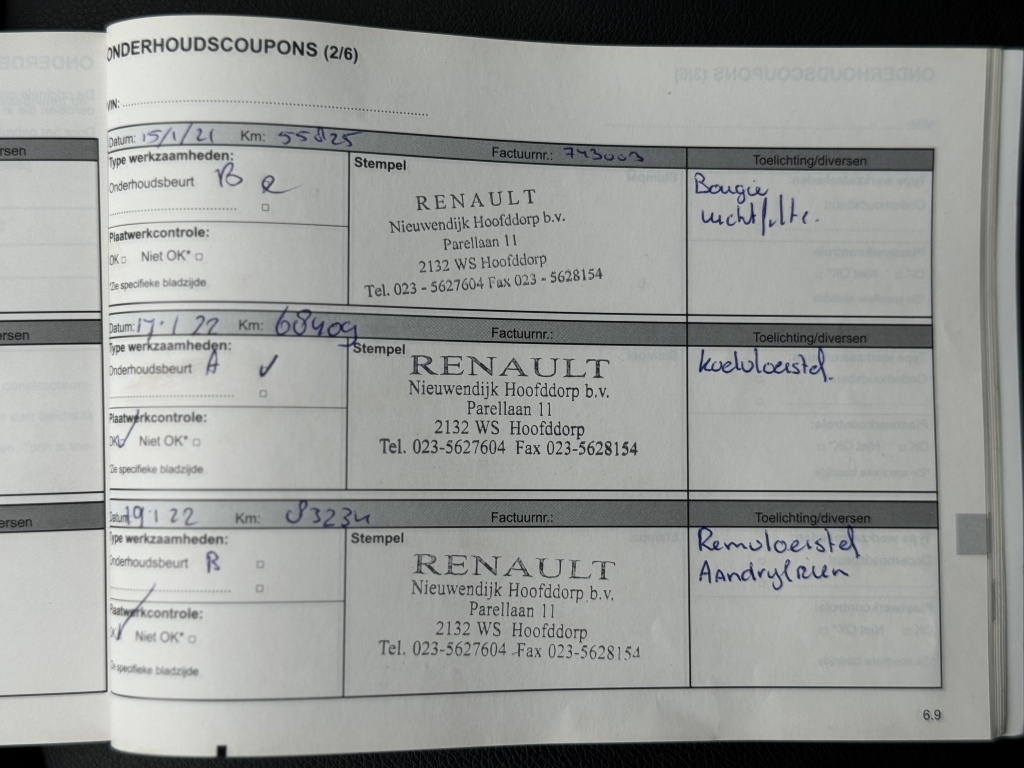 ONDERHOUDSCOUPONS (2/6)
VIN:
Datum: 15/1/21 Km: 55825 Factuurnr.: 743003 Toelichting/diversen
Type werkzaamheden:
Onderhoudsbeurt B
Plaatwerkcontrole:
OK Niet OK*
*Zie specifieke bladzijde
Stempel
RENAULT
Nieuwendijk Hoofddorp b.v.
Parellaan 11
2132 WS Hoofddorp
Tel. 023 - 5627604 Fax 023 - 5628154
Bougie
luchtfilte.
Datum: 17.1 22 Km: 68409 Factuurnr.: Toelichting/diversen
Type werkzaamheden:
Onderhoudsbeurt A
Plaatwerkcontrole:
OK Niet OK*
*Zie specifieke bladzijde
Stempel
RENAULT
Nieuwendijk Hoofddorp b.v.
Parellaan 11
2132 WS Hoofddorp
Tel. 023-5627604 Fax 023-5628154
koelvloeistof.
Datum: 19 1 22 Km: 83234 Factuurnr.: Toelichting/diversen
Type werkzaamheden:
Onderhoudsbeurt B
Plaatwerkcontrole:
Niet OK*
*Zie specifieke bladzijde
Stempel
RENAULT
Nieuwendijk Hoofddorp b.v.
Parellaan 11
2132 WS Hoofddorp
Tel. 023-5627604 Fax 023-5628154
Remvloeistof
Aandrijfriem
6.9